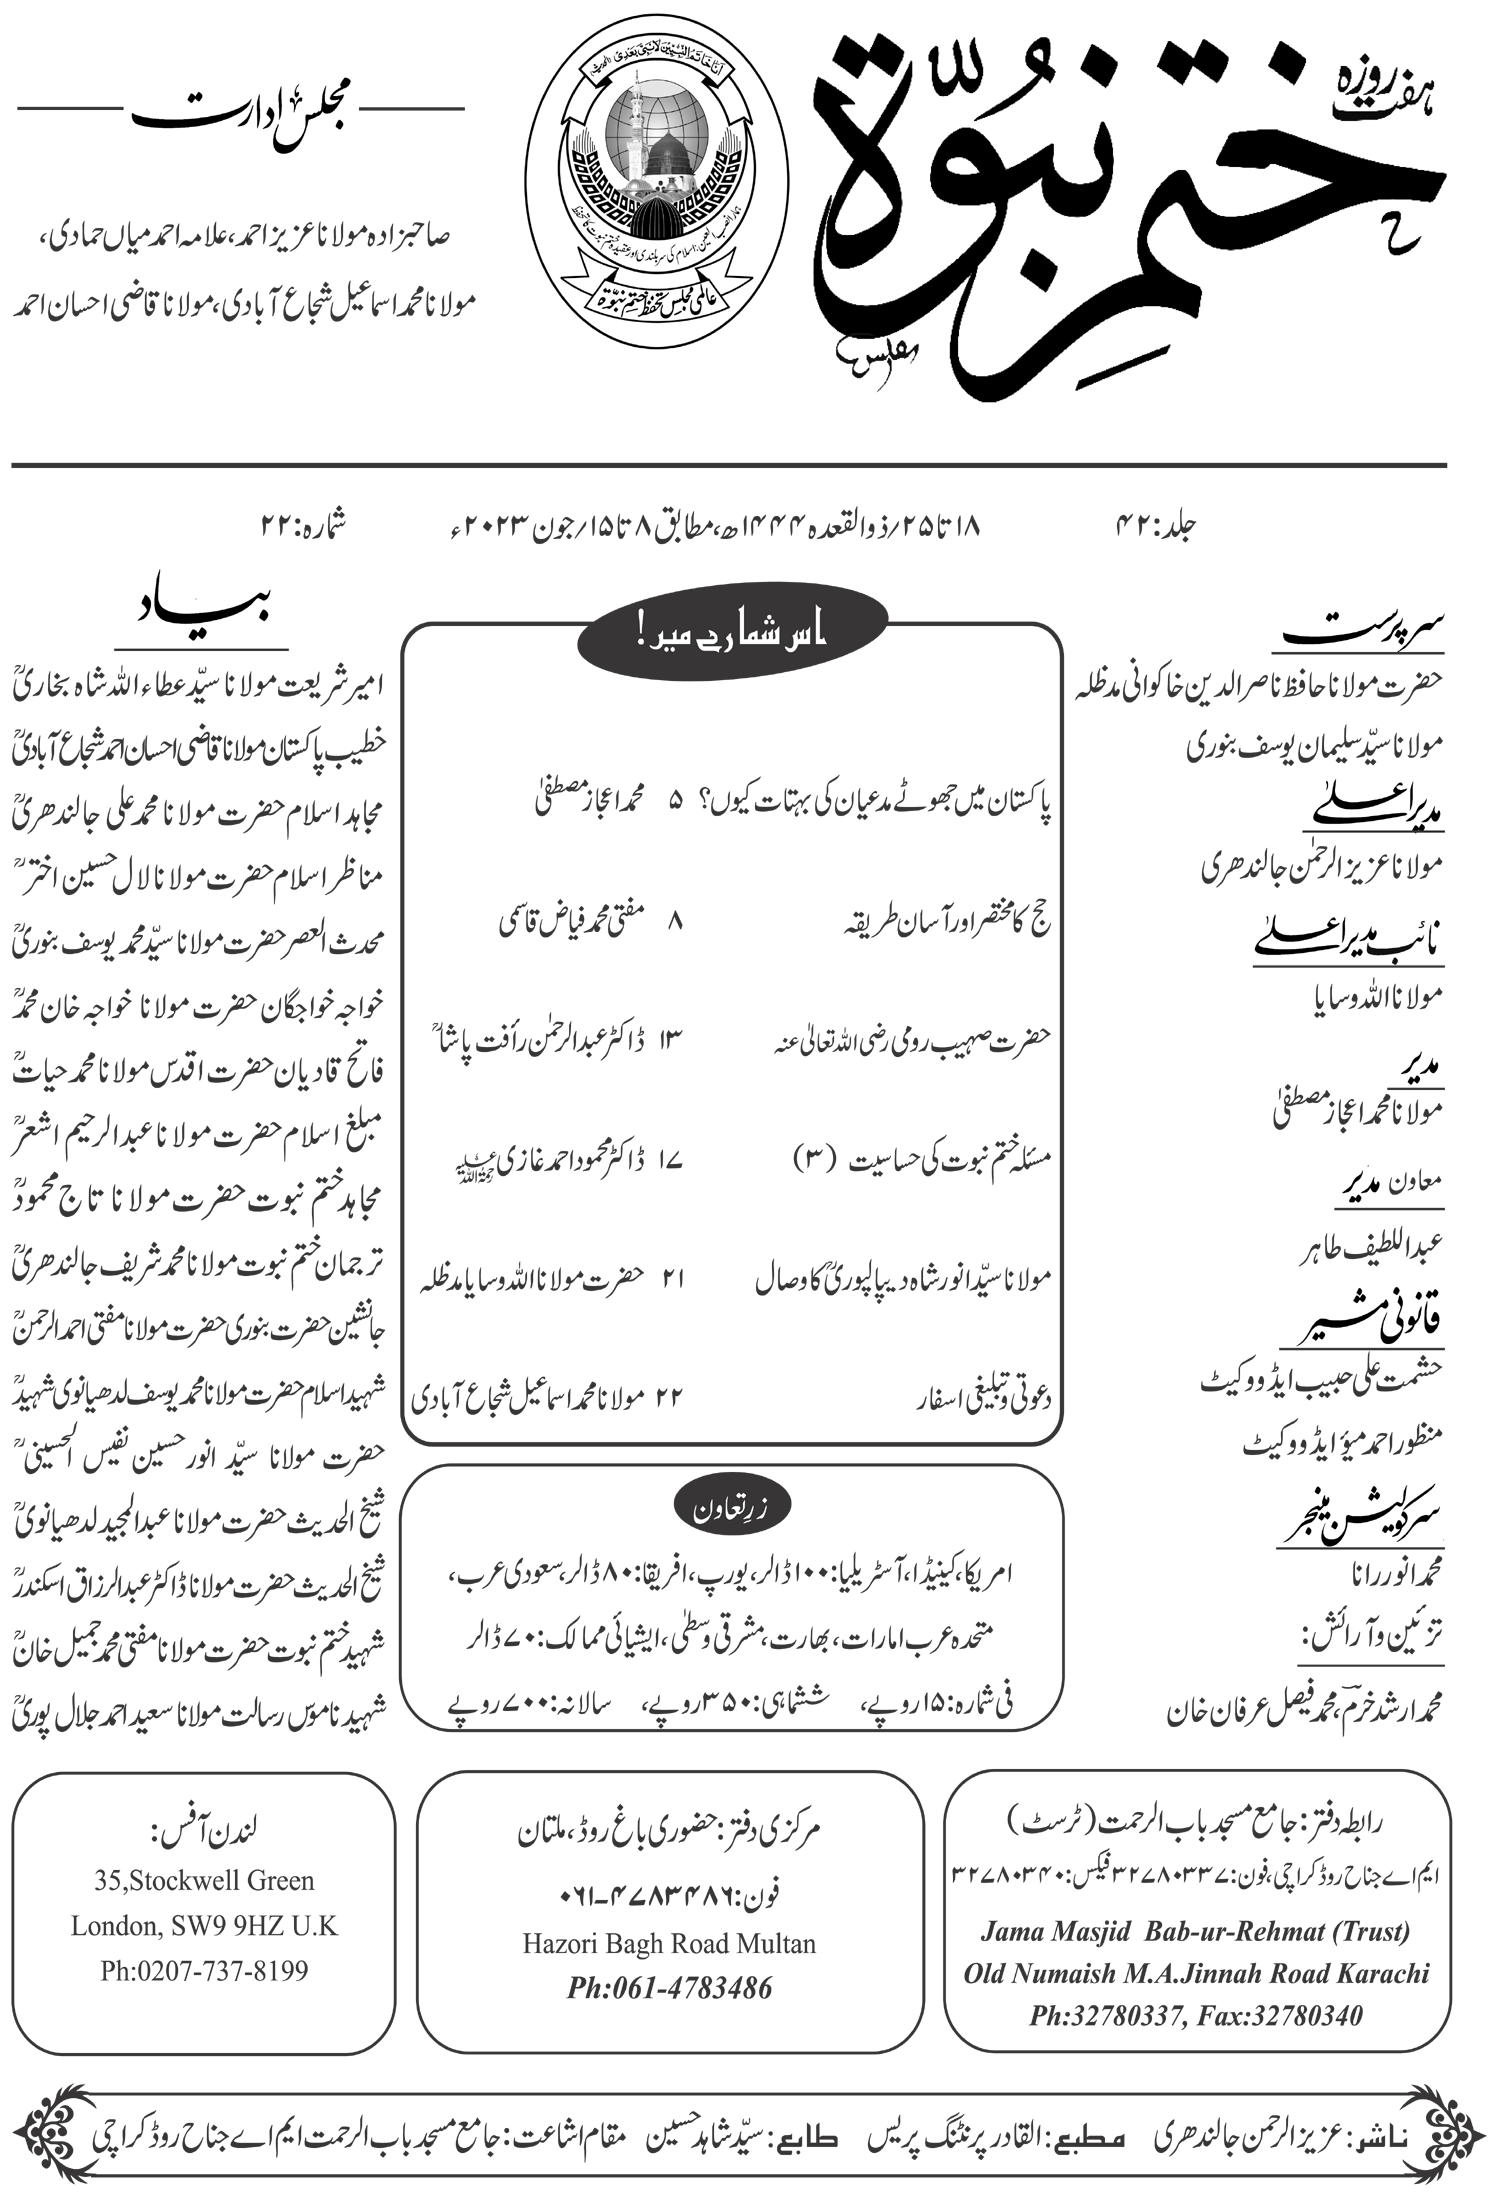 ہفت روزہ
ختم نبوّة
انا خاتم النبیین لا نبی بعدی
عالمی مجلس تحفظ ختم نبوّة
مجلس ادارت
صاحبزادہ مولانا عزیز احمد، علامہ احمد میاں حمادی،
مولانا محمد اسماعیل شجاع آبادی، مولانا قاضی احسان احمد
جلد: ۴۲ ۱۸ تا ۲۵/ذوالقعدہ ۱۴۴۴ھ، مطابق ۸ تا ۱۵/جون ۲۰۲۳ء شمارہ: ۲۲
سرپرست
حضرت مولانا حافظ ناصر الدین خاکوانی مدظلہ
مولانا سیّد سلیمان یوسف بنوری
مدیر اعلےٰ
مولانا عزیز الرحمٰن جالندھری
نائب مدیر اعلےٰ
مولانا اللہ وسایا
مدیر
مولانا محمد اعجاز مصطفیٰ
معاون مدیر
عبداللطیف طاہر
قانونی مشیر
حشمت علی حبیب ایڈووکیٹ
منظور احمد میؤ ایڈووکیٹ
سرکولیشن مینجر
محمد انور رانا
تزئین و آرائش:
محمد ارشد خرم، محمد فیصل عرفان خان
اس شمارے میں!
پاکستان میں جھوٹے مدعیان کی بہتات کیوں؟ ۵ محمد اعجاز مصطفیٰ
حج کا مختصر اور آسان طریقہ ۸ مفتی محمد فیاض قاسمی
حضرت صہیب رومی رضی اللہ تعالیٰ عنہ ۱۳ ڈاکٹر عبدالرحمٰن رأفت پاشاؒ
مسئلہ ختم نبوت کی حساسیت (۳) ۱۷ ڈاکٹر محمود احمد غازی رحمۃ اللہ علیہ
مولانا سیّد انور شاہ دیپالپوریؒ کا وصال ۲۱ حضرت مولانا اللہ وسایا مدظلہ
دعوتی و تبلیغی اسفار ۲۲ مولانا محمد اسماعیل شجاع آبادی
زرِتعاون
امریکا، کینیڈا، آسٹریلیا: ۱۰۰ ڈالر، یورپ، افریقا: ۸۰ ڈالر، سعودی عرب،
متحدہ عرب امارات، بھارت، مشرقی وسطیٰ، ایشیائی ممالک: ۷۰ ڈالر
فی شمارہ: ۱۵ روپے، ششماہی: ۳۵۰ روپے، سالانہ: ۷۰۰ روپے
بیاد
امیر شریعت مولانا سیّد عطاء اللہ شاہ بخاریؒ
خطیب پاکستان مولانا قاضی احسان احمد شجاع آبادیؒ
مجاہد اسلام حضرت مولانا محمد علی جالندھریؒ
مناظر اسلام حضرت مولانا لال حسین اخترؒ
محدث العصر حضرت مولانا سیّد محمد یوسف بنوریؒ
خواجہ خواجگان حضرت مولانا خواجہ خان محمدؒ
فاتح قادیان حضرت اقدس مولانا محمد حیاتؒ
مبلغ اسلام حضرت مولانا عبدالرحیم اشعرؒ
مجاہد ختم نبوت حضرت مولانا تاج محمودؒ
ترجمان ختم نبوت مولانا محمد شریف جالندھریؒ
جانشین حضرت بنوری حضرت مولانا مفتی احمد الرحمنؒ
شہید اسلام حضرت مولانا محمد یوسف لدھیانوی شہیدؒ
حضرت مولانا سیّد انور حسین نفیس الحسینیؒ
شیخ الحدیث حضرت مولانا عبدالمجید لدھیانویؒ
شیخ الحدیث حضرت مولانا ڈاکٹر عبدالرزاق اسکندرؒ
شہید ختم نبوت حضرت مولانا مفتی محمد جمیل خانؒ
شہید ناموس رسالت مولانا سعید احمد جلال پوریؒ
رابطہ دفتر: جامع مسجد باب الرحمت (ٹرسٹ)
ایم اے جناح روڈ کراچی، فون: ۳۲۷۸۰۳۳۷ فیکس: ۳۲۷۸۰۳۴۰
Jama Masjid Bab-ur-Rehmat (Trust)
Old Numaish M.A.Jinnah Road Karachi
Ph:32780337, Fax:32780340
مرکزی دفتر: حضوری باغ روڈ، ملتان
فون: ۰۶۱-۴۷۸۳۴۸۶
Hazori Bagh Road Multan
Ph:061-4783486
لندن آفس:
35,Stockwell Green
London, SW9 9HZ U.K
Ph:0207-737-8199
ناشر: عزیز الرحمن جالندھری مطبع: القادر پرنٹنگ پریس طابع: سیّد شاہد حسین مقام اشاعت: جامع مسجد باب الرحمت ایم اے جناح روڈ کراچی